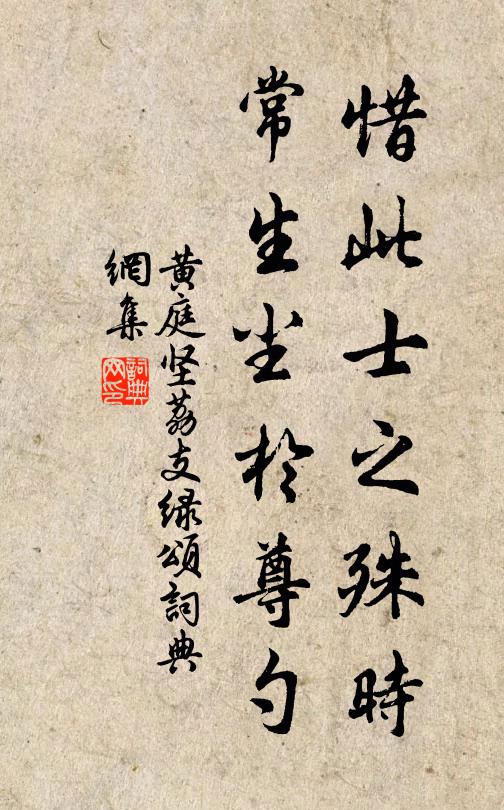 惜此士之殊時
常生尘於尊勺
黄庭坚荔支绿頌詞典
網集
詞典
网印